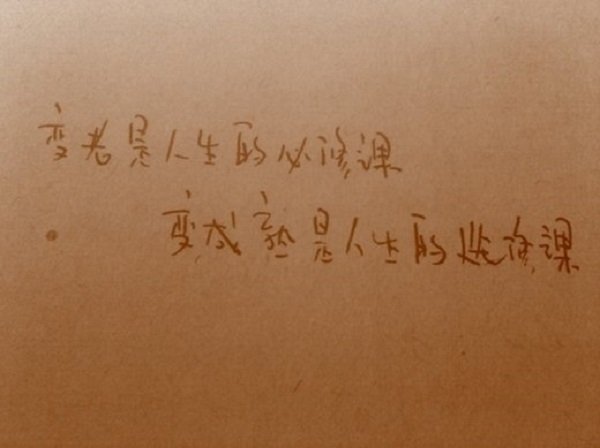 变老是人生的必修课
变成熟是人生的选修课